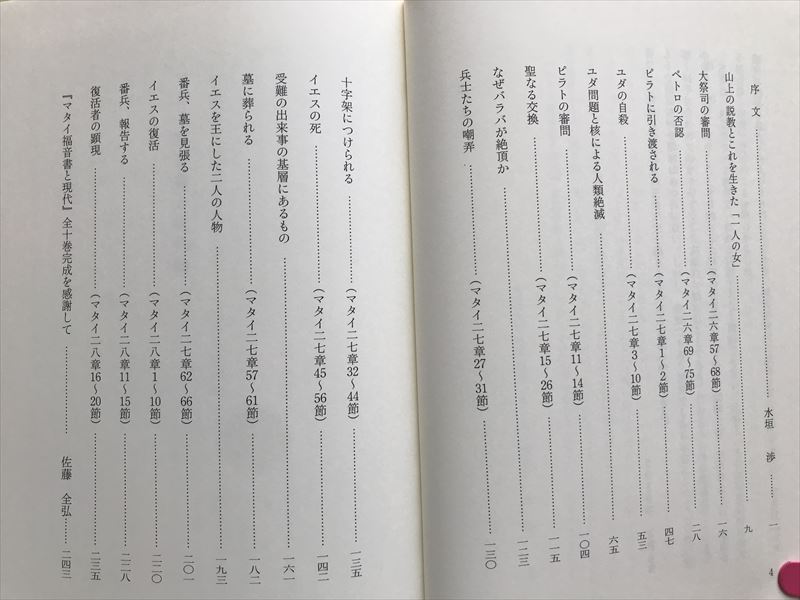 序文 水垣 渉 一
山上の説教とこれを生きた「一人の女」 九
大祭司の審問 (マタイ二六章57〜68節) 一六
ペトロの否認 (マタイ二六章69〜75節) 二八
ピラトに引き渡される (マタイ二七章1〜2節) 四七
ユダの自殺 (マタイ二七章3〜10節) 五三
ユダ問題と核による人類絶滅 六五
ピラトの審問 (マタイ二七章11〜14節) 一〇四
聖なる交換 (マタイ二七章15〜26節) 一一五
なぜバラバが絶頂か 一二三
兵士たちの嘲弄 (マタイ二七章27〜31節) 一三〇
4
十字架につけられる (マタイ二七章32〜44節) 一三五
イエスの死 (マタイ二七章45〜56節) 一四二
受難の出来事の基層にあるもの 一六一
墓に葬られる (マタイ二七章57〜61節) 一八二
イエスを王にした二人の人物 一九三
番兵、墓を見張る (マタイ二七章62〜66節) 二〇一
イエスの復活 (マタイ二八章1〜10節) 二二〇
番兵、報告する (マタイ二八章11〜15節) 二二八
復活者の顕現 (マタイ二八章16〜20節) 二三五
『マタイ福音書と現代』全十巻完成を感謝して 佐藤 全弘 二四三